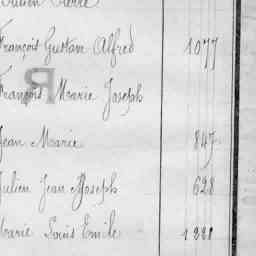 Julien Pierre
François Gustave Alfred 1077
François Marie Joseph
Jean Marie 847
Julien Jean Joseph 628
Marie Louis Emile